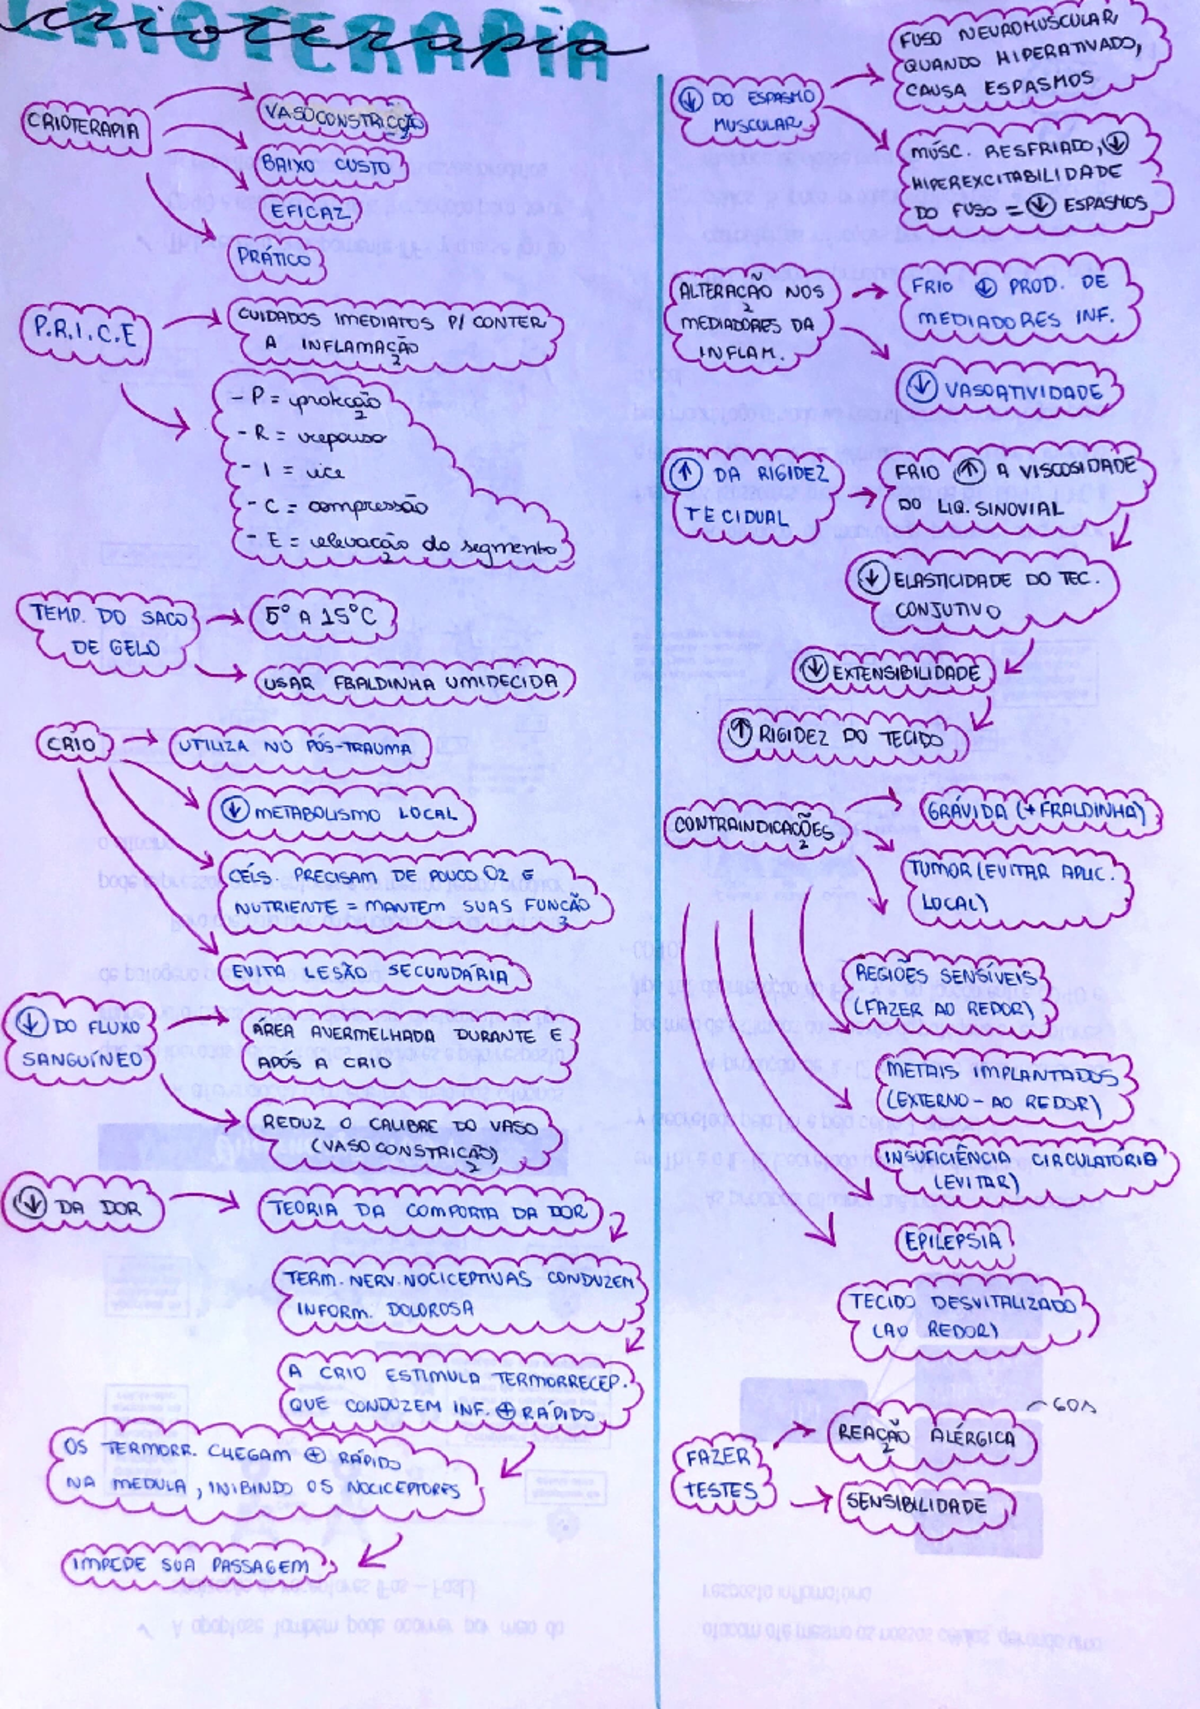 CRIOTERAPIA
crioterapia
CRIOTERAPIA
VASOCONSTRICÇÃO
BAIXO CUSTO
EFICAZ
PRÁTICO
P.R.I.C.E
CUIDADOS IMEDIATOS P/ CONTER
A INFLAMAÇÃO
- P = proteção
- R = repouso
- I = ice
- C = compressão
- E = elevação do segmento
TEMP. DO SACO
DE GELO
5° A 15°C
USAR FRALDINHA UMIDECIDA
CRIO
UTILIZA NO PÓS-TRAUMA
↓ METABOLISMO LOCAL
CÉLS. PRECISAM DE POUCO O2 E
NUTRIENTE = MANTEM SUAS FUNÇÃO
EVITA LESÃO SECUNDÁRIA
↓ DO FLUXO
SANGUÍNEO
ÁREA AVERMELHADA DURANTE E
APÓS A CRIO
REDUZ O CALIBRE DO VASO
(VASOCONSTRICÃO)
↓ DA DOR
TEORIA DA COMPORTA DA DOR
TERM. NERV. NOCICEPTIVAS CONDUZEM
INFORM. DOLOROSA
A CRIO ESTIMULA TERMORRECEP.
QUE CONDUZEM INF. ⊕ RÁPIDO
OS TERMORR. CHEGAM ⊕ RÁPIDO
NA MEDULA, INIBINDO OS NOCICEPTORES
IMPEDE SUA PASSAGEM
↓ DO ESPASMO
MUSCULAR
FUSO NEUROMUSCULAR,
QUANDO HIPERATIVADO,
CAUSA ESPASMOS
MÚSC. RESFRIADO, ↓
HIPEREXCITABILIDADE
DO FUSO = ↓ ESPASMOS
ALTERAÇÃO NOS
MEDIADORES DA
INFLAM.
FRIO ↓ PROD. DE
MEDIADORES INF.
↓ VASOATIVIDADE
↑ DA RIGIDEZ
TECIDUAL
FRIO ↑ A VISCOSIDADE
DO LIQ. SINOVIAL
↓ ELASTICIDADE DO TEC.
CONJUTIVO
↓ EXTENSIBILIDADE
↑ RIGIDEZ DO TECIDO
CONTRAINDICAÇÕES
GRÁVIDA (+FRALDINHA)
TUMOR (EVITAR APLIC.
LOCAL)
REGIÕES SENSÍVEIS
(FAZER AO REDOR)
METAIS IMPLANTADOS
(EXTERNO - AO REDOR)
INSUFICIÊNCIA CIRCULATÓRIA
(EVITAR)
EPILEPSIA
TECIDO DESVITALIZADO
(AO REDOR)
FAZER
TESTES
REAÇÃO ALÉRGICA
SENSIBILIDADE